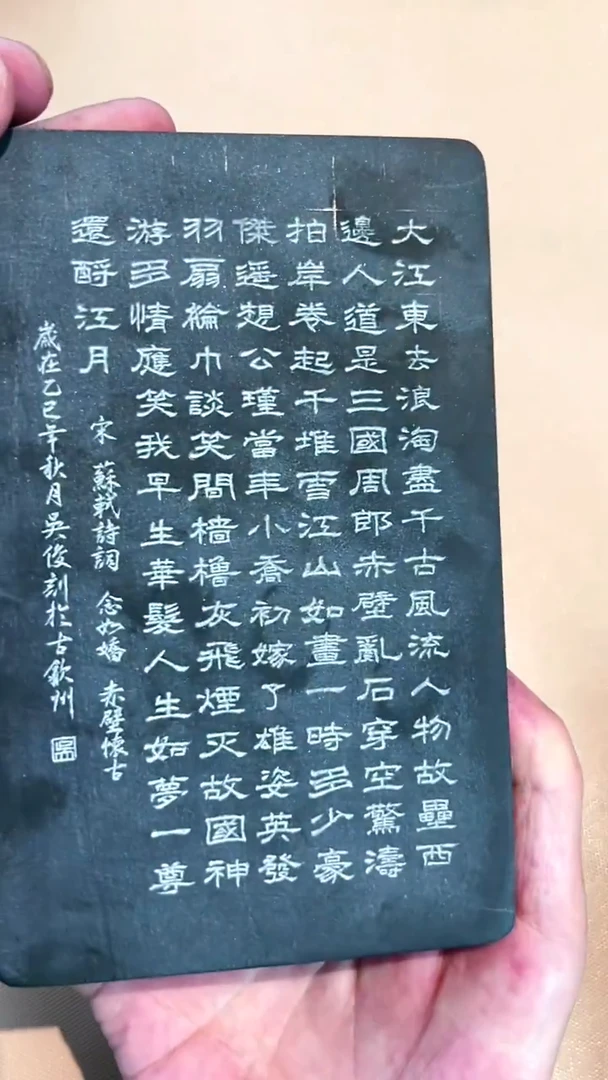 大江東去浪淘盡千古風流人物故壘西
邊人道是三國周郎赤壁亂石穿空驚濤
拍岸卷起千堆雪江山如畫一時多少豪
傑遥想公瑾當年小喬初嫁了雄姿英發
羽扇綸巾談笑間檣櫓灰飛煙灭故國神
游多情應笑我早生華髮人生如夢一尊
還酹江月
宋 蘇軾詩詞 念奴嬌 赤壁懷古
歲在乙巳年秋月吳俊刻於古歙州